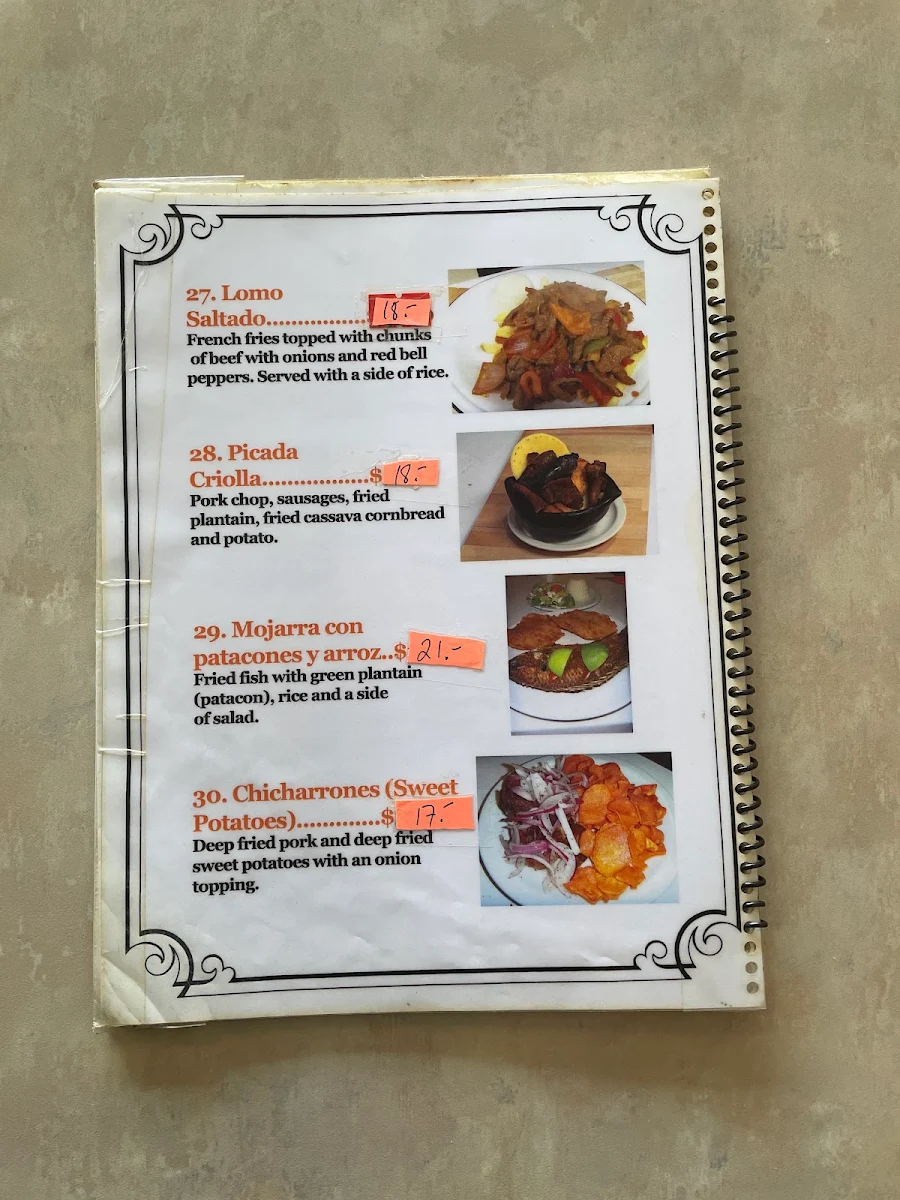 27. Lomo
Saltado................18.-
French fries topped with chunks
of beef with onions and red bell
peppers. Served with a side of rice.
28. Picada
Criolla..................$18.-
Pork chop, sausages, fried
plantain, fried cassava cornbread
and potato.
29. Mojarra con
patacones y arroz..$21.-
Fried fish with green plantain
(patacon), rice and a side
of salad.
30. Chicharrones (Sweet
Potatoes).............$17.-
Deep fried pork and deep fried
sweet potatoes with an onion
topping.